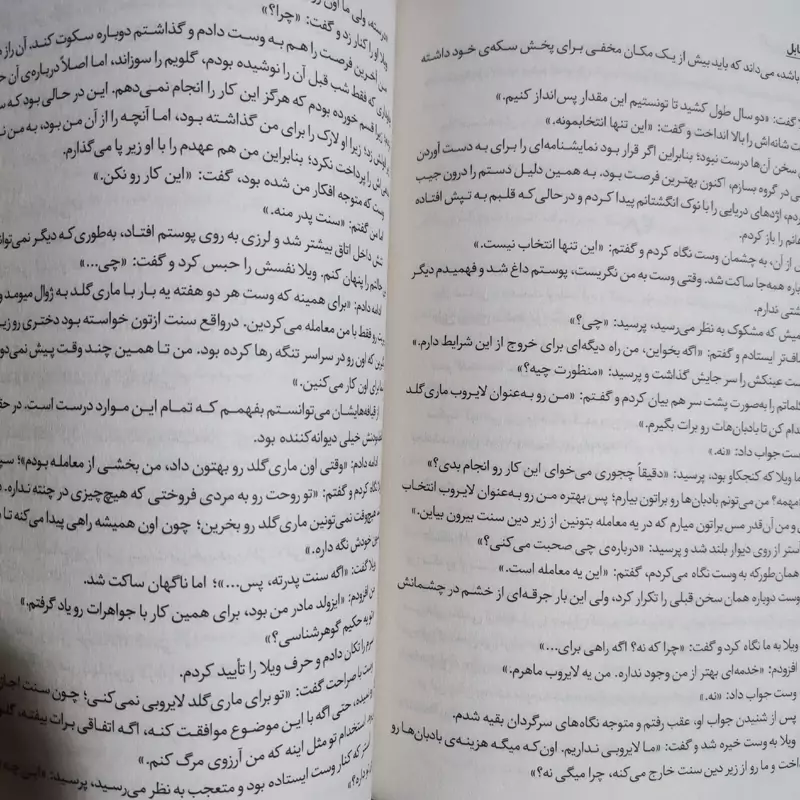 ایل
باشد، می‌داند که باید بیش از یک مکان مخفی برای پخش سکه‌ی خود داشته
گفت: «دو سال طول کشید تا تونستیم این مقدار پس‌انداز کنیم.»
شانه‌اش را بالا انداخت و گفت: «این تنها انتخابمونه.»
سخن آن‌ها درست نبود؛ بنابراین اگر قرار بود نمایشنامه‌ای را برای به دست آوردن
در گروه بسازم، اکنون بهترین فرصت بود. به همین دلیل دستم را درون جیب
اژدهای دریایی را با نوک انگشتانم پیدا کردم و درحالی‌که قلبم به تپش افتاده
را باز کردم.
از آن، به چشمان وست نگاه کردم و گفتم: «این تنها انتخاب نیست.»
همه‌جا ساکت شد. وقتی وست به من نگریست، پوستم داغ شد و فهمیدم دیگر
ندارم.
که مشکوک به نظر می‌رسید، پرسید: «چی؟»
ایستادم و گفتم: «اگه بخواین، من راه دیگه‌ای برای خروج از این شرایط دارم.»
عینکش را سر جایش گذاشت و پرسید: «منظورت چیه؟»
کلماتم را به‌صورت پشت سر هم بیان کردم و گفتم: «من رو به‌عنوان لایروب ماری‌گلد
کن تا بادبان‌هات رو برات بگیرم.»
جواب داد: «نه.»
ویلا که کنجکاو بود، پرسید: «دقیقاً چجوری می‌خوای این کار رو انجام بدی؟»
مهمه؟ من می‌تونم بادبان‌ها رو براتون بیارم؛ پس بهتره من رو به‌عنوان لایروب انتخاب
و من آن‌قدر مس براتون میارم که در یه معامله بتونین از زیر دین سنت بیرون بیاین.»
از روی دیوار بلند شد و پرسید: «درباره‌ی چی صحبت می‌کنی؟»
همان‌طورکه به وست نگاه می‌کردم، گفتم: «این یه معامله است.»
وست دوباره همان سخن قبلی را تکرار کرد، ولی این بار جرقه‌ای از خشم در چشمانش
ویلا به ما نگاه کرد و گفت: «چرا که نه؟ اگه راهی برای...»
افزودم: «خدمه‌ای بهتر از من وجود نداره. من یه لایروب ماهرم.»
وست جواب داد: «نه.»
پس از شنیدن جواب او، عقب رفتم و متوجه نگاه‌های سرگردان بقیه شدم.
ویلا به وست خیره شد و گفت: «ما لایروبی نداریم. اون‌که میگه هزینه‌ی بادبان‌ها رو
و ما رو از زیر دین سنت خارج می‌کنه، چرا میگی نه؟»
ولی ما اون
ویلا او را کنار زد و گفت: «چرا؟»
آخرین فرصت را هم به وست دادم و گذاشتم دوباره سکوت کند.
که فقط شب قبل آن را نوشیده بودم، گلویم را سوزاند، اما اصلاً درباره‌ی آن
قسم خورده بودم که هرگز این کار را انجام نمی‌دهم. این در حالی بود که
زیرا او لارک را برای من گذاشته بود، اما آنچه را از آن من بود، به من
را پرداخت نکرد؛ بنابراین من هم عهدم را با او زیر پا می‌گذارم.
وست که متوجه افکار من شده بود، گفت: «این کار رو نکن.»
اما من گفتم: «سنت پدر منه.»
تنش داخل اتاق بیشتر شد و لرزی به روی پوستم افتاد، به‌طوری‌که دیگر
را پنهان کنم. ویلا نفسش را حبس کرد و گفت: «چی...»
ادامه دادم: «برای همینه که وست هر دو هفته یه بار با ماری‌گلد به ژوال میومد و
رو فقط با من معامله می‌کردین. درواقع سنت ازتون خواسته بود دختری رو
که اون رو در سراسر تنگه رها کرده بود. من تا همین چند وقت پیش
برای اون کار می‌کنین.»
از قیافه‌هایشان می‌توانستم بفهمم که تمام این موارد درست است.
خیلی دیوانه‌کننده بود.
ادامه دادم: «وقتی اون ماری‌گلد رو بهتون داد، من بخشی از معامله بودم»؛
نگاه کردم و گفتم: «تو روحت رو به مردی فروختی که هیچ‌چیزی در چنته نداره.
هیچ‌وقت نمی‌تونین ماری‌گلد رو بخرین؛ چون اون همیشه راهی پیدا می‌کنه تا
خودش نگه داره.»
ویلا گفت: «اگه سنت پدرته، پس...»؛ اما ناگهان ساکت شد.
من افزودم: «ایزولد مادر من بود، برای همین کار با جواهرات رو یاد گرفتم.»
«تو یه حکیم گوهرشناسی؟»
سرم را تکان دادم و حرف ویلا را تأیید کردم.
وست با صراحت گفت: «تو برای ماری‌گلد لایروبی نمی‌کنی؛ چون سنت
حتی اگه با این موضوع موافقت کنه، اگه اتفاقی برات بیفته،
استخدام تو مثل اینه که من آرزوی مرگ کنم.»
که کنار وست ایستاده بود و متعجب به نظر می‌رسید، پرسید: